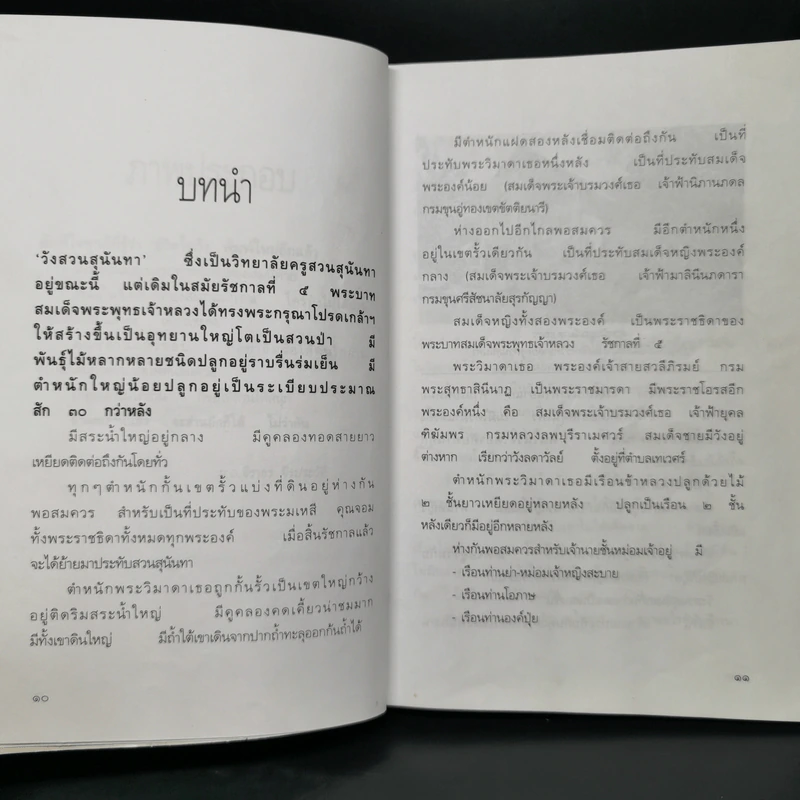 บทนำ
'วังสวนสุนันทา' ซึ่งเป็นวิทยาลัยครูสวนสุนันทา
อยู่ขณะนี้ แต่เดิมในสมัยรัชกาลที่ ๕ พระบาท
สมเด็จพระพุทธเจ้าหลวงได้ทรงพระกรุณาโปรดเกล้าฯ
ให้สร้างขึ้นเป็นอุทยานใหญ่โตเป็นสวนป่า มี
พันธุ์ไม้หลากหลายชนิดปลูกอยู่ราบรื่นร่มเย็น มี
ตำหนักใหญ่น้อยปลูกอยู่เป็นระเบียบประมาณ
สัก ๓๐ กว่าหลัง
มีสระน้ำใหญ่อยู่กลาง มีคูคลองทอดสายยาว
เหยียดติดต่อถึงกันโดยทั่ว
ทุกๆตำหนักกั้นเขตรั้วแบ่งที่ดินอยู่ห่างกัน
พอสมควร สำหรับเป็นที่ประทับของพระมเหสี คุณจอม
ทั้งพระราชธิดาทั้งหมดทุกพระองค์ เมื่อสิ้นรัชกาลแล้ว
จะได้ย้ายมาประทับสวนสุนันทา
ตำหนักพระวิมาดาเธอถูกกั้นรั้วเป็นเขตใหญ่กว้าง
อยู่ติดริมสระน้ำใหญ่ มีคูคลองคดเคี้ยวน่าชมมาก
มีทั้งเขาดินใหญ่ มีถ้ำใต้เขาเดินจากปากถ้ำทะลุออกก้นถ้ำได้
๑๐
มีตำหนักแฝดสองหลังเชื่อมติดต่อถึงกัน เป็นที่
ประทับพระวิมาดาเธอหนึ่งหลัง เป็นที่ประทับสมเด็จ
พระองค์น้อย (สมเด็จพระเจ้าบรมวงศ์เธอ เจ้าฟ้านิภานภดล
กรมขุนอู่ทองเขตขัตติยนารี)
ห่างออกไปอีกไกลพอสมควร มีอีกตำหนักหนึ่ง
อยู่ในเขตรั้วเดียวกัน เป็นที่ประทับสมเด็จหญิงพระองค์
กลาง (สมเด็จพระเจ้าบรมวงศ์เธอ เจ้าฟ้ามาลินีนภดารา
กรมขุนศรีสัชนาลัยสุรกัญญา)
สมเด็จหญิงทั้งสองพระองค์ เป็นพระราชธิดาของ
พระบาทสมเด็จพระพุทธเจ้าหลวง รัชกาลที่ ๕
พระวิมาดาเธอ พระองค์เจ้าสายสวลีภิรมย์ กรม
พระสุทธาสินีนาฏ เป็นพระราชมารดา มีพระราชโอรสอีก
พระองค์หนึ่ง คือ สมเด็จพระเจ้าบรมวงศ์เธอ เจ้าฟ้ายุคล
ทิฆัมพร กรมหลวงลพบุรีราเมศวร์ สมเด็จชายมีวังอยู่
ต่างหาก เรียกว่าวังลดาวัลย์ ตั้งอยู่ที่ตำบลเทเวศร์
ตำหนักพระวิมาดาเธอมีเรือนข้าหลวงปลูกด้วยไม้
๒ ชั้นยาวเหยียดอยู่หลายหลัง ปลูกเป็นเรือน ๒ ชั้น
หลังเดียวก็มีอยู่อีกหลายหลัง
ห่างกันพอสมควรสำหรับเจ้านายชั้นหม่อมเจ้าอยู่ มี
- เรือนท่านย่า-หม่อมเจ้าหญิงสะบาย
- เรือนท่านโอภาษ
- เรือนท่านองค์ปุ๋ย
๑๑